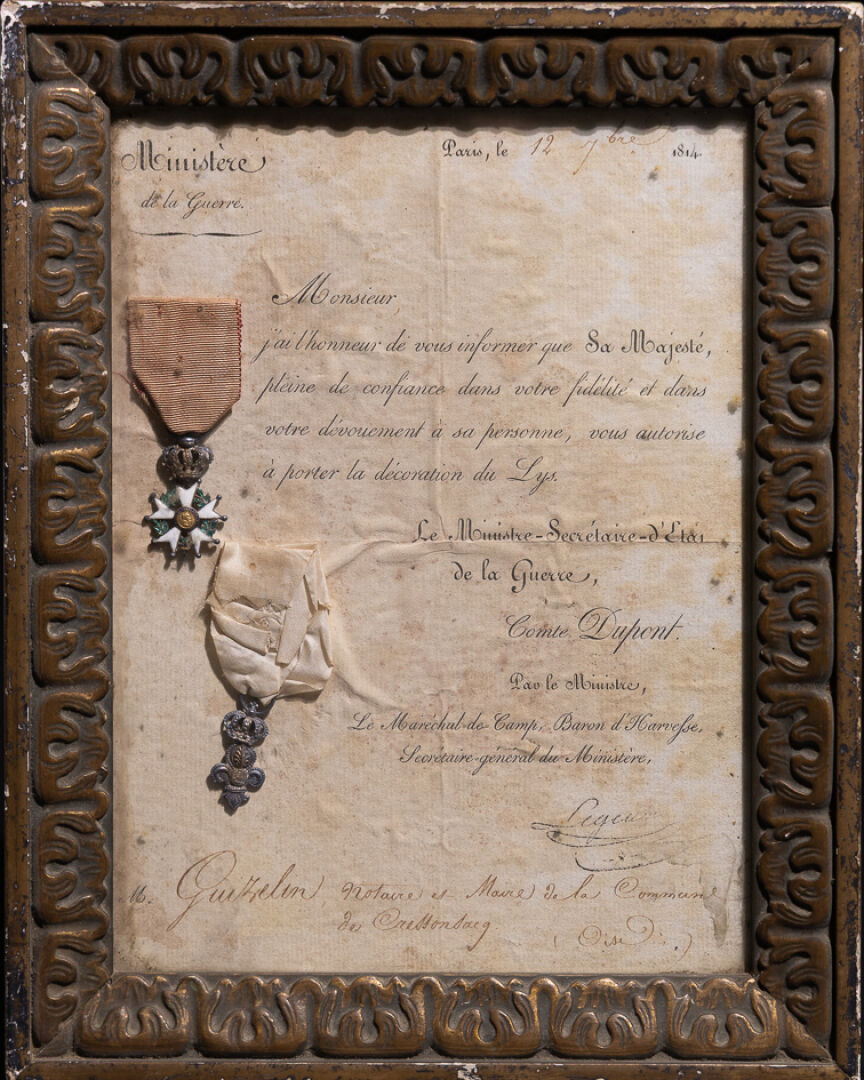 Ministère
de la Guerre.
Paris, le 12 7bre 1814
Monsieur,
j'ai l'honneur de vous informer que Sa Majesté,
pleine de confiance dans votre fidélité et dans
votre dévouement à sa personne, vous autorise
à porter la décoration du Lys.
Le Ministre-Secrétaire-d'Etat
de la Guerre,
Comte Dupont.
Par le Ministre,
Le Maréchal-de-Camp, Baron
Secrétaire-général du Ministère,
M. Guizelin, Notaire et Maire de la Commune
de Cressonsacq
(Oise.)